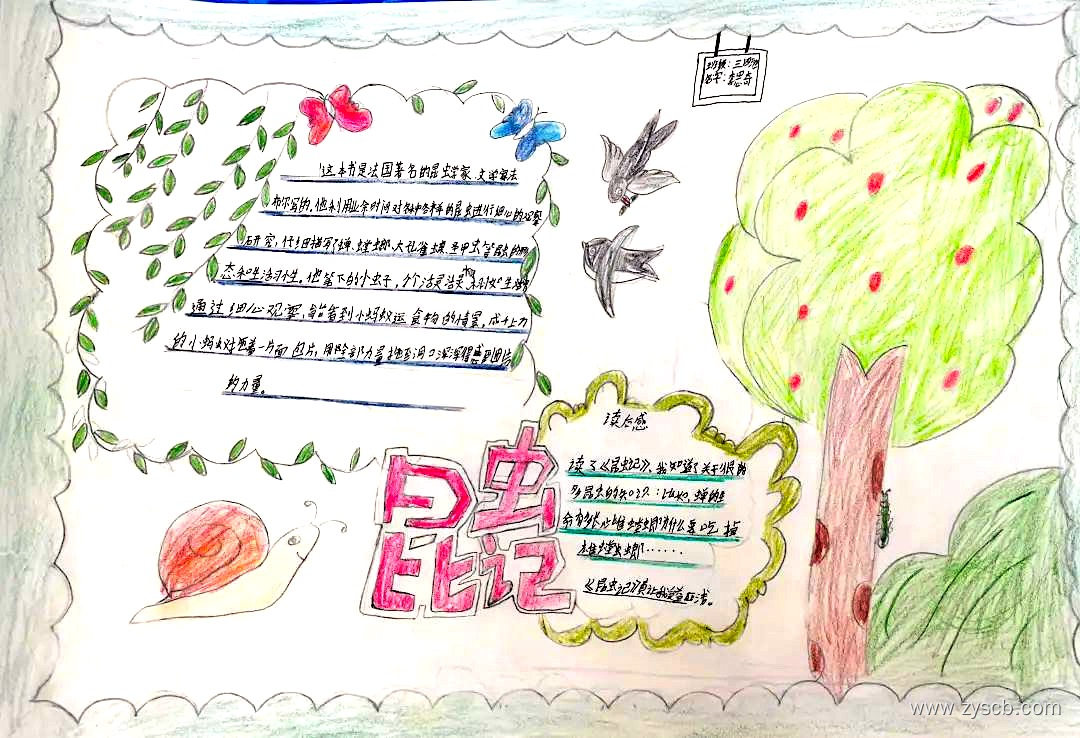 班级：三四班
姓名：李思奇
这本书是法国著名的昆虫学家、文学家法
布尔写的，他利用业余时间对各种各样的昆虫进行细心的观察
研究，仔细描写了蝉、螳螂、大孔雀蝶、圣甲虫等昆虫的形
态和生活习性。他笔下的小虫子，个个活灵活灵
通过细心观察，当看到小蚂蚁运食物的情景，成千上万
的小蚂蚁对着一片面包片，用全部力量拖至洞口深深得感到团结
的力量。
昆虫记
读后感
读了《昆虫记》，我知道了关于很
多昆虫的知识：比如，蝉的生
命有多长，雌螳螂为什么要吃掉
雄螳螂……
《昆虫记》真让我受益匪浅。
www.zyscb.com